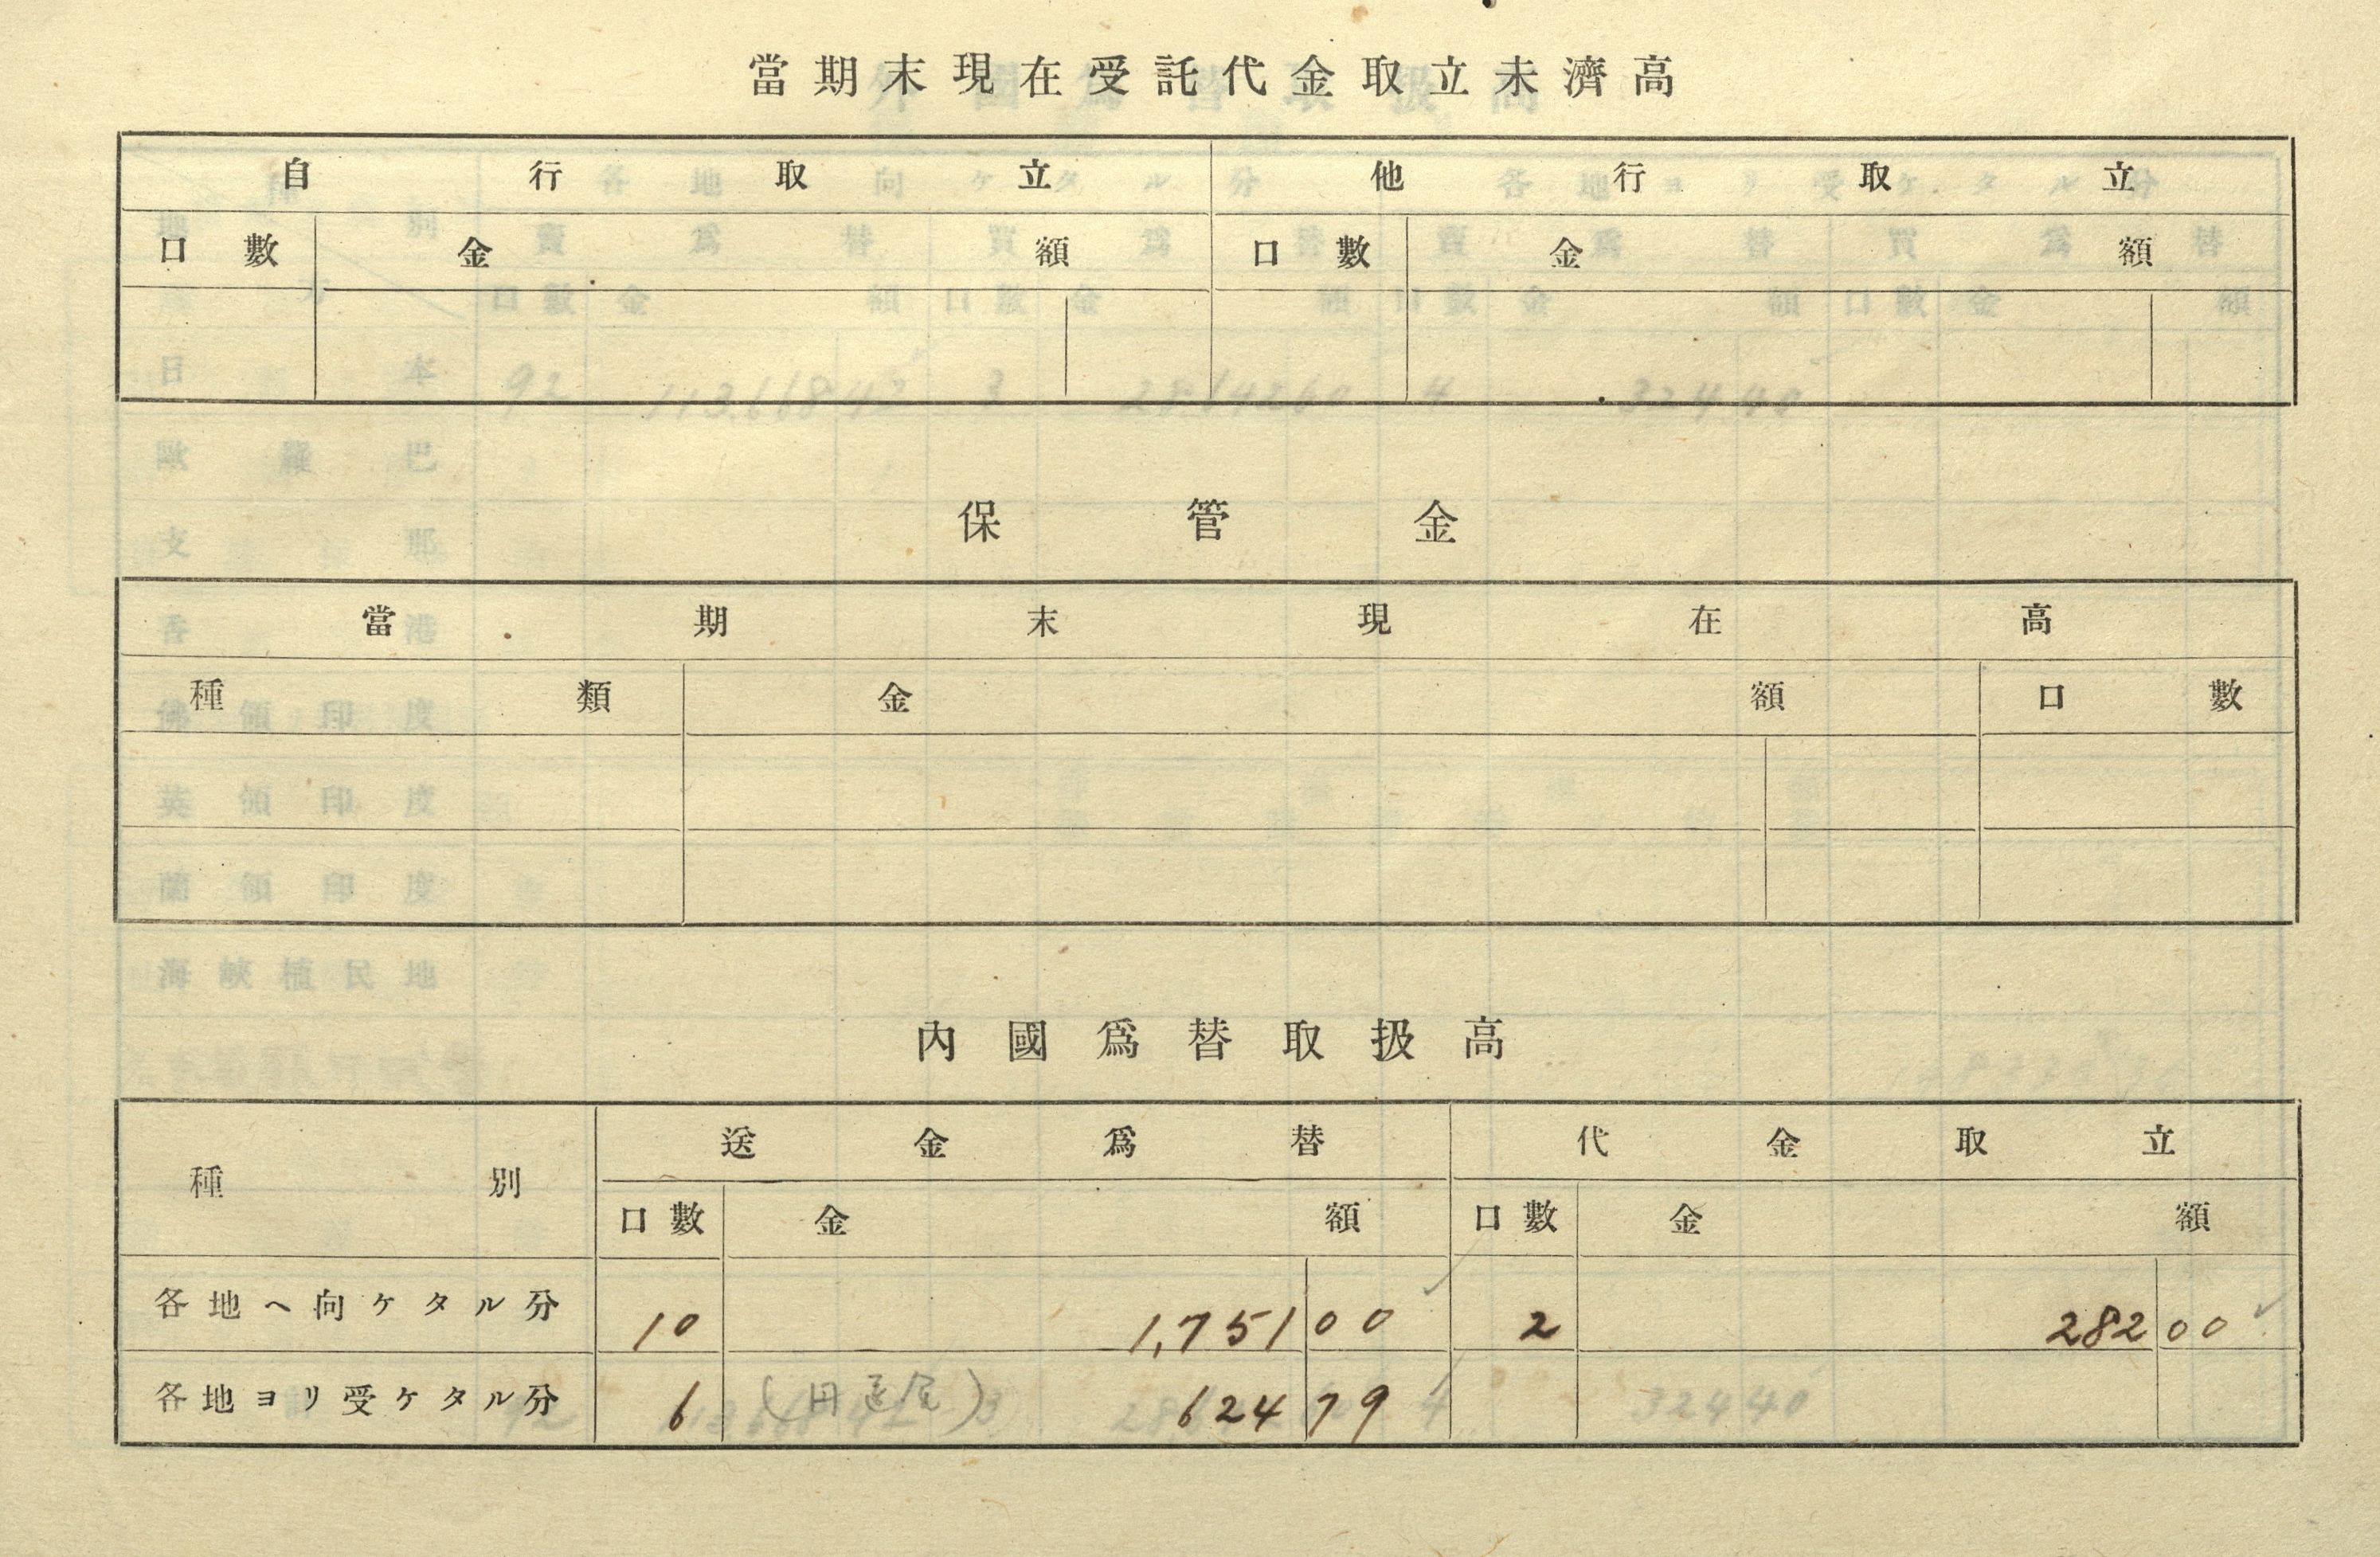 當期末現在受託代金取立未濟高
自行取立 他行取立
口數 金額 口數 金額
保管金
當期末現在高
種類 金額 口數
內國爲替取扱高
種別 送金爲替 代金取立
口數 金額 口數 金額
各地ヘ向ケタル分 10 1,751 00 2 282 00
各地ヨリ受ケタル分 6 (円送金) 624 79